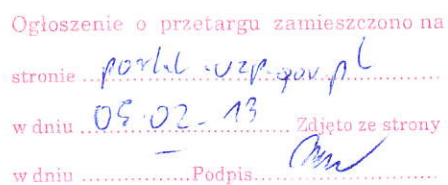 Ogłoszenie o przetargu zamieszczono na
stronie ... portal.uzp.gov.pl ...
w dniu 05.02.13 Zdjęto ze strony
w dniu — Podpis